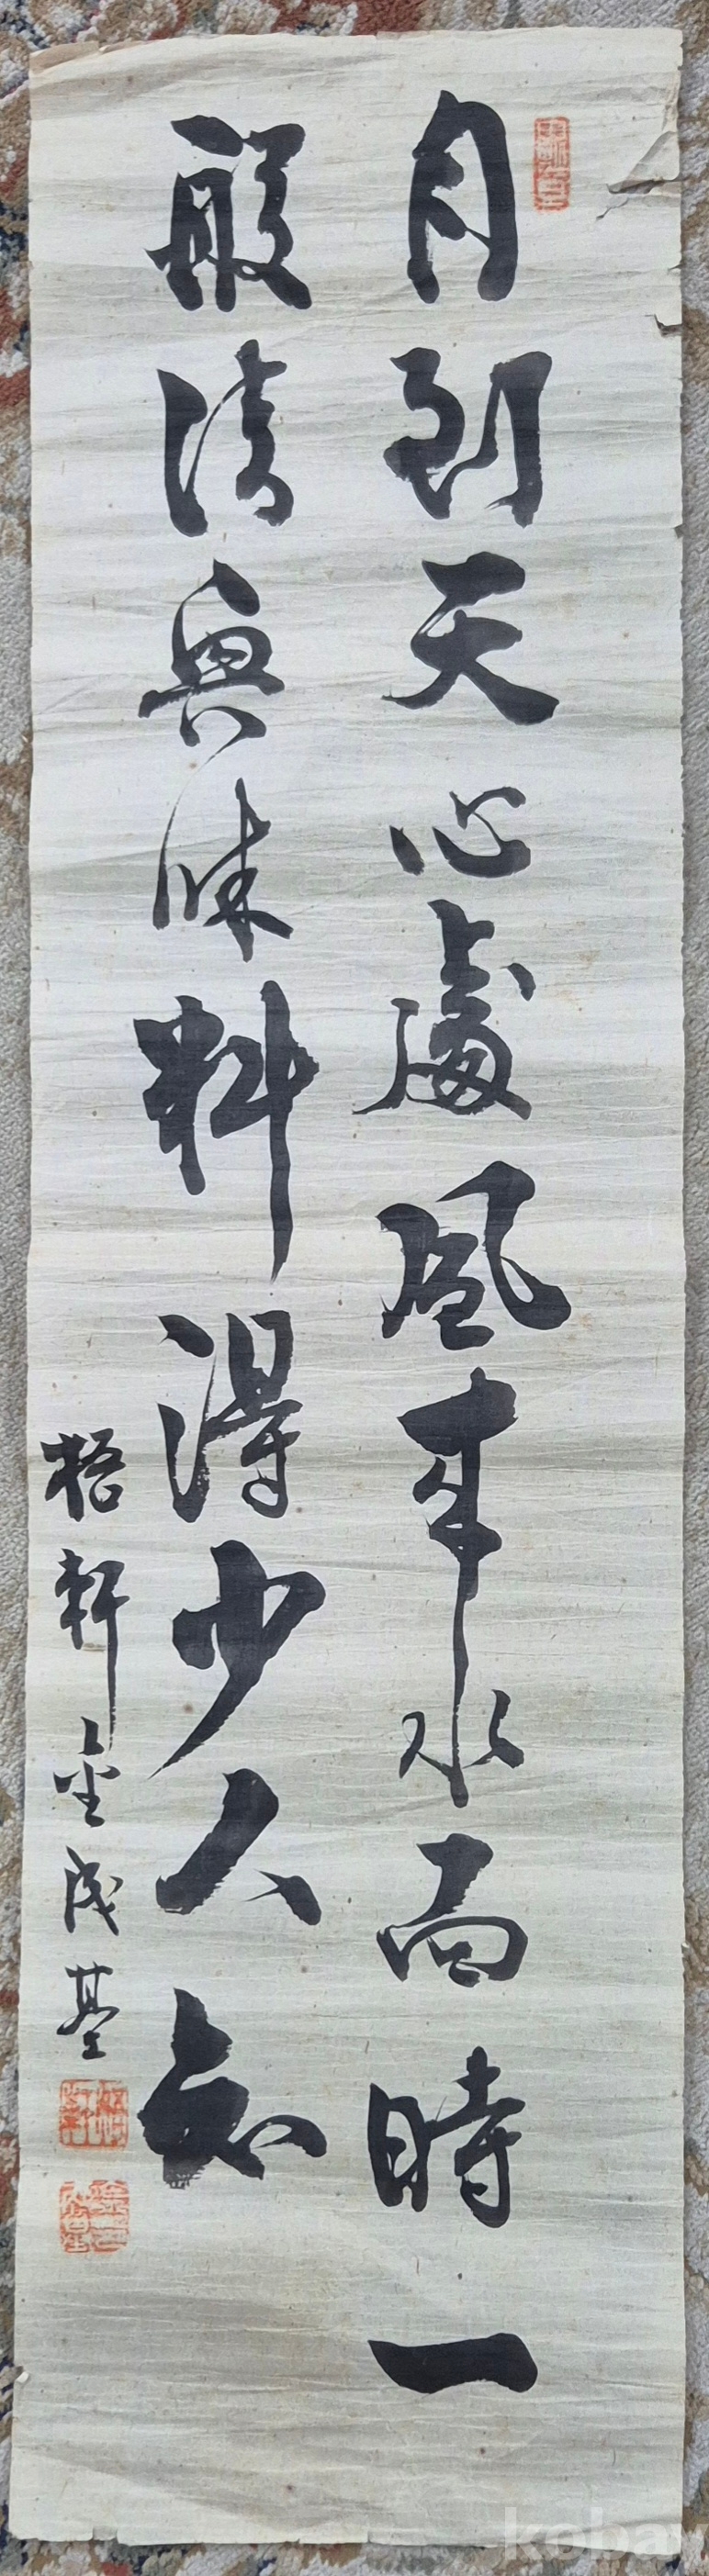 月到天心處風來水面時一
般清興味料得少人知
梧軒金成基
kobay